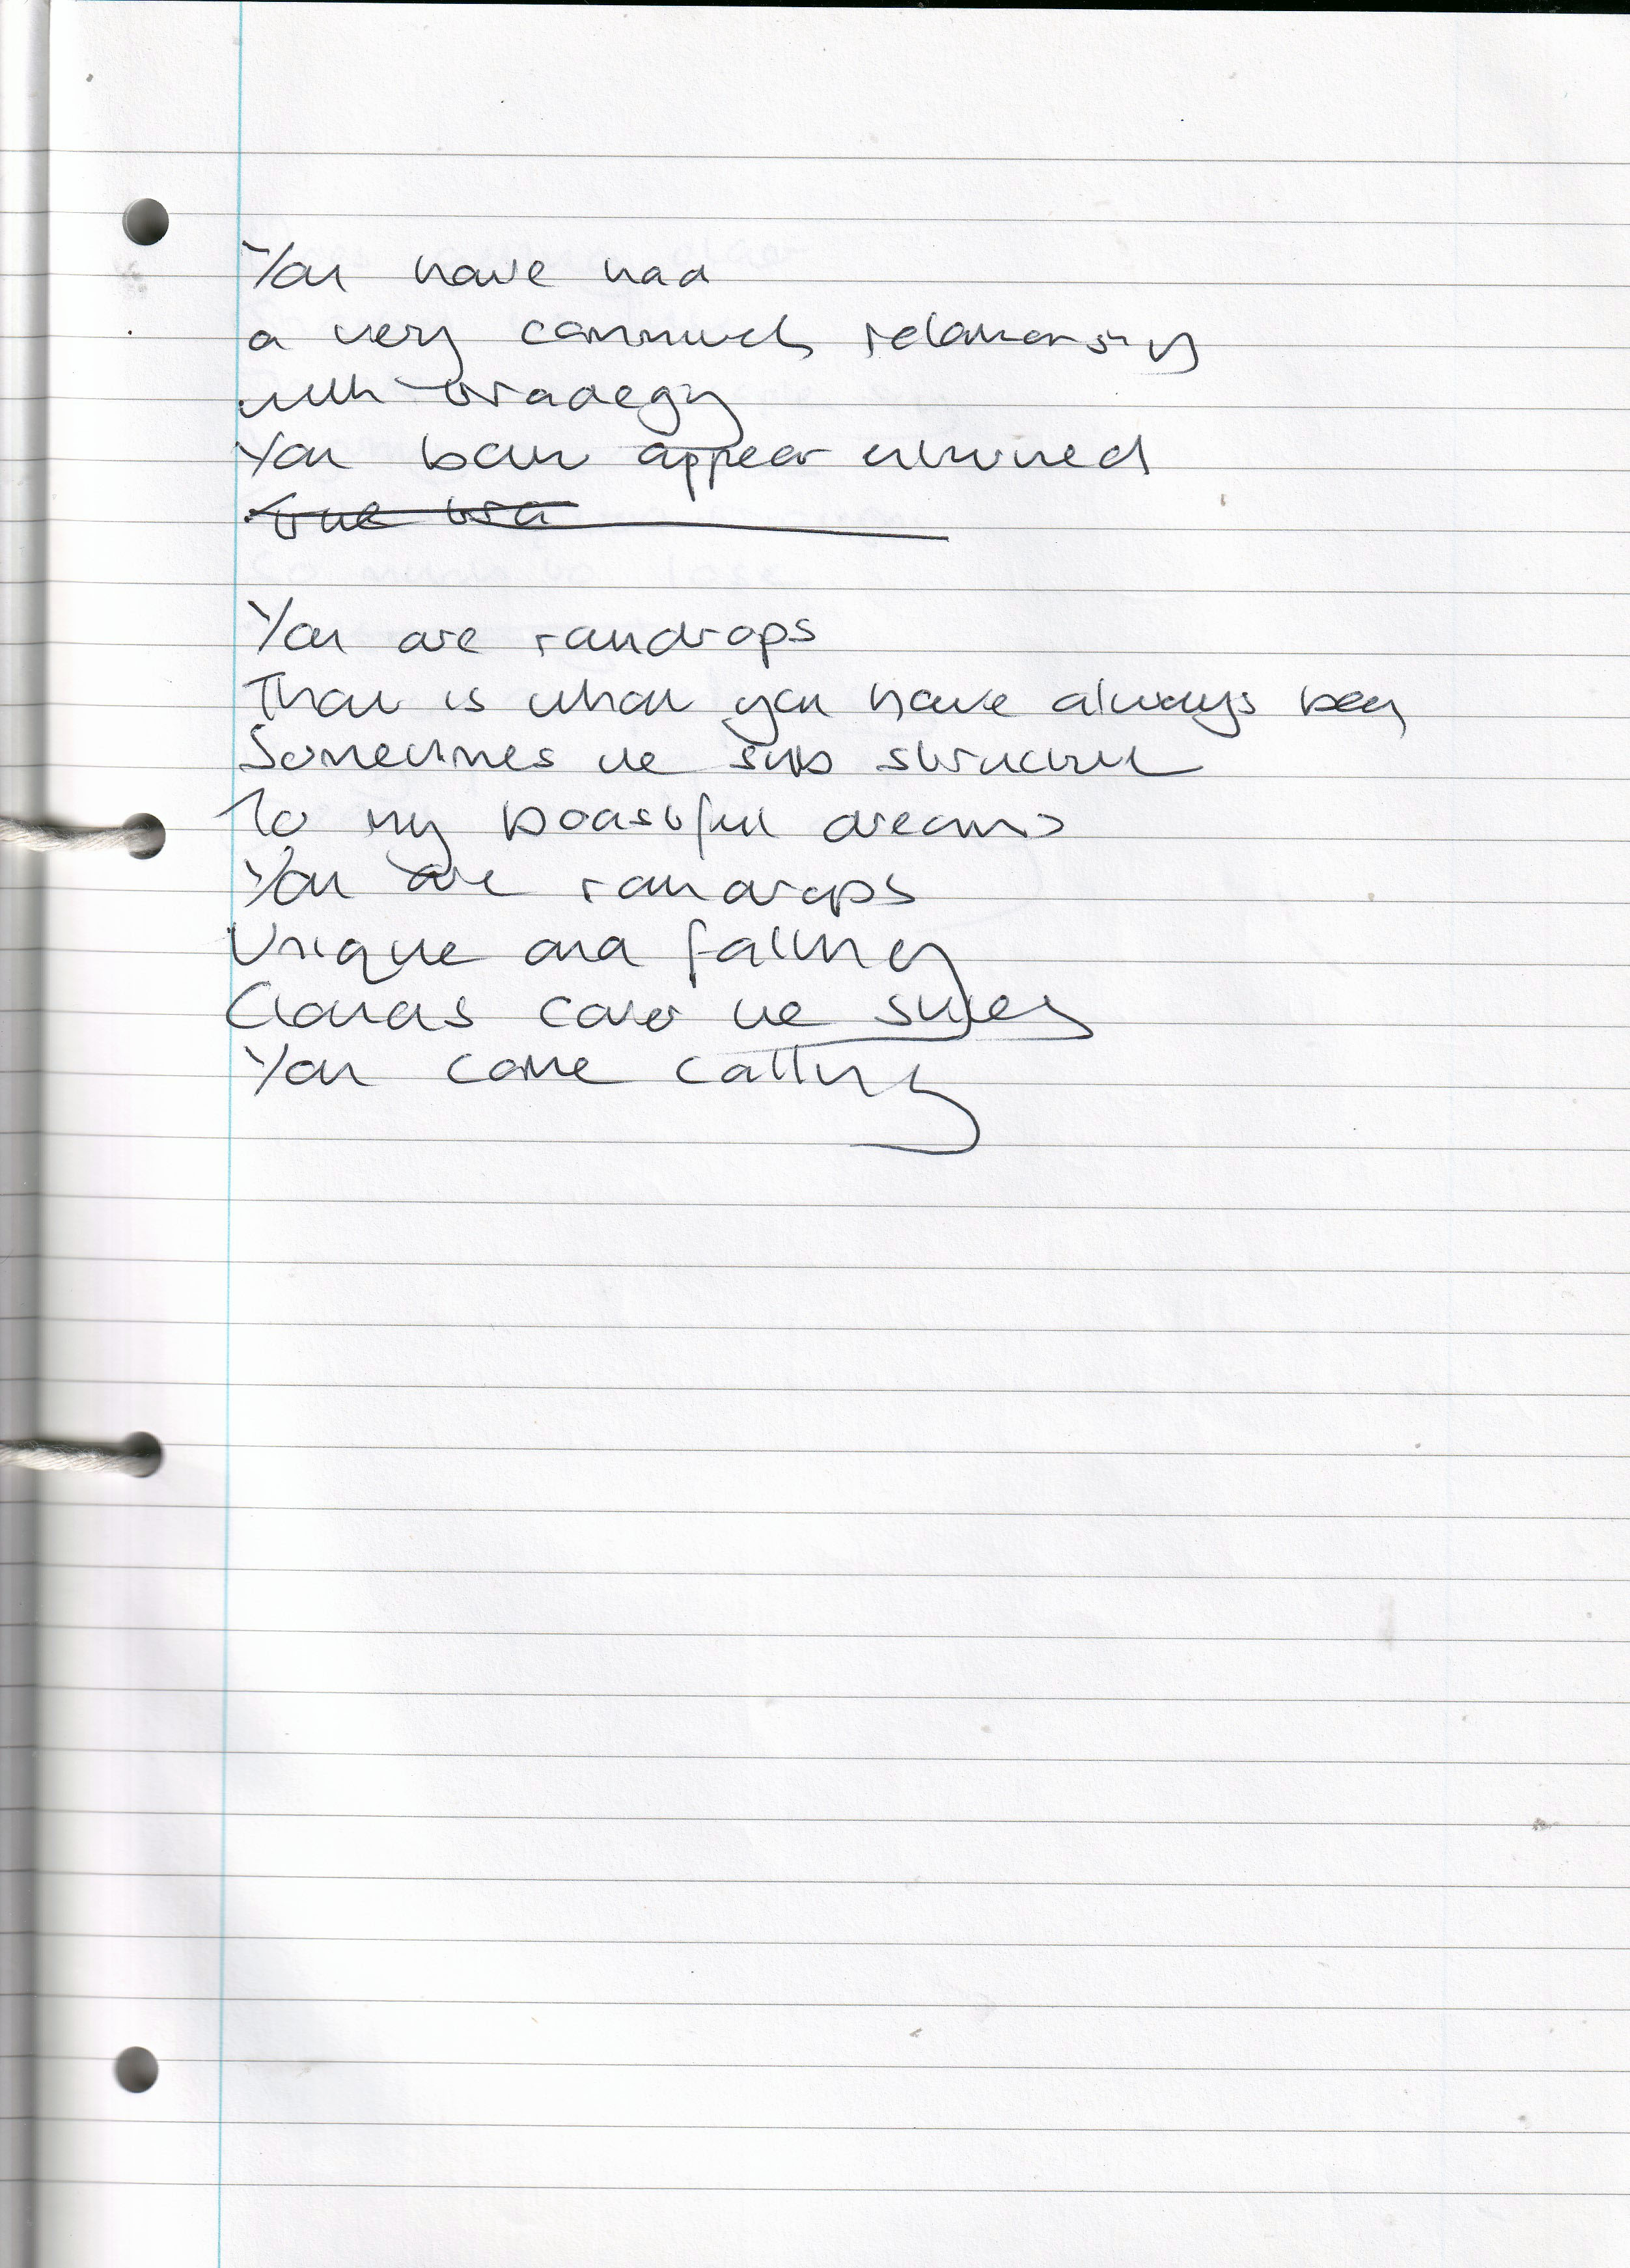 You have had
a very relationship
with tradegy
You both appear entwined
You are raindrops
That is what you have always been
Sometimes the sub structure
To my boastful dreams
You are raindrops
Unique and falling
Clouds cover the skies
You come calling